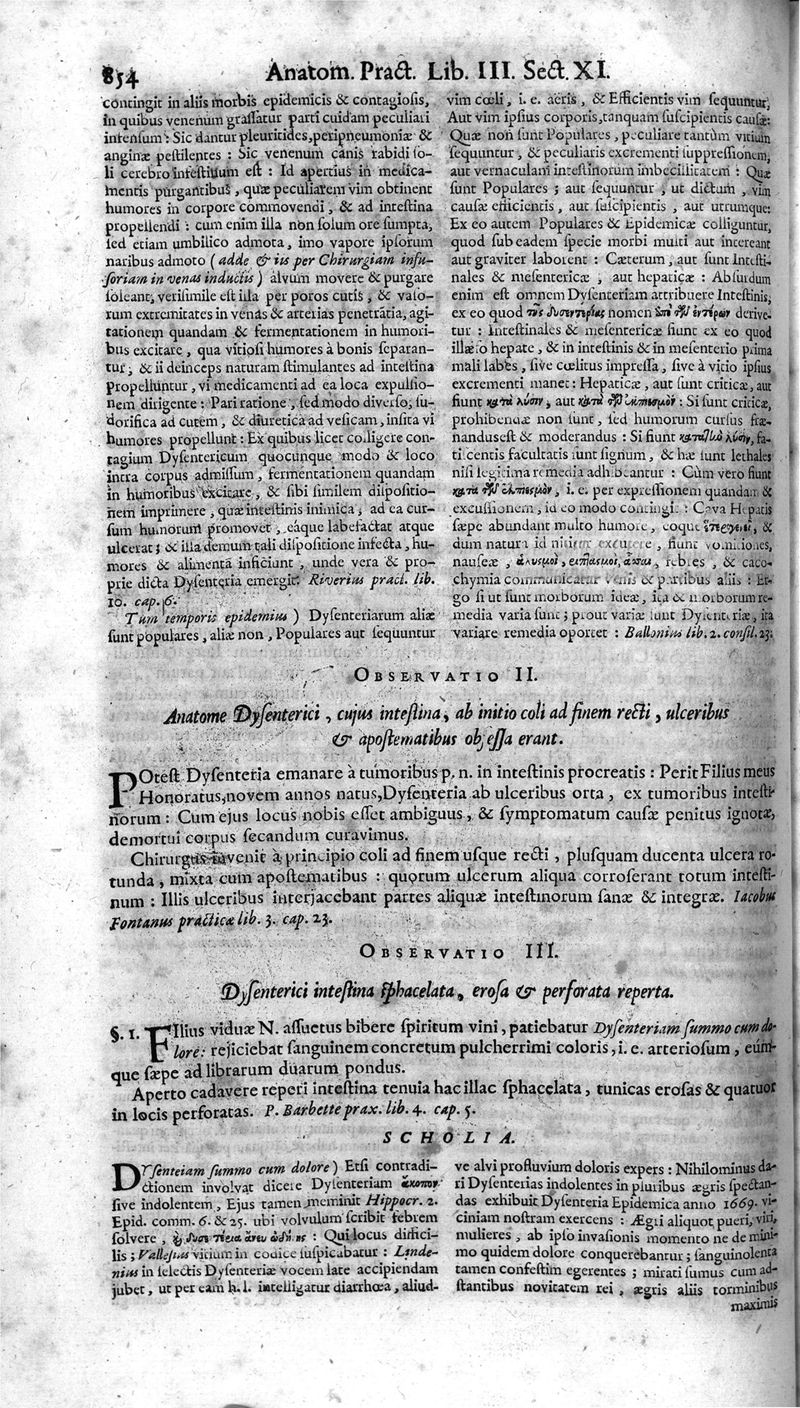 854 Anatom. Pract. Lib. III. Sect. XI.
contingit in aliis morbis epidemicis & contagiosis,
in quibus venenum grassatur parti cuidam peculiari
intensum: Sic dantur pleuritides, peripneumoniæ &
anginæ pestilentes : Sic venenum canis rabidi so-
li cerebro infestissimum est : Id apertius in medica-
mentis purgantibus, quæ peculiarem vim obtinent
humores in corpore commovendi, & ad intestina
propellendi : cum enim illa non solum ore sumpta,
sed etiam umbilico admota, imo vapore ipsorum
naribus admoto (adde & iis per Chirurgiam infu-
soriam in venas inductis) alvum movere & purgare
soleant, verisimile est illa per poros cutis, & vaso-
rum extremitates in venas & arterias penetrātia, agi-
tationem quandam & fermentationem in humori-
bus excitare, qua vitiosi humores à bonis separan-
tur, & ii deinceps naturam stimulantes ad intestina
propelluntur, vi medicamenti ad ea loca expulsio-
nem dirigente : Pari ratione, sed modo diverso, su-
dorifica ad cutem, & diuretica ad vesicam, insita vi
humores propellunt : Ex quibus licet colligere con-
tagium Dysentericum quocunque modo & loco
intra corpus admissum, fermentationem quandam
in humoribus excitare, & sibi similem dispositio-
nem imprimere, quæ intestinis inimica, ad ea cur-
sum humorum promovet, eaque labefactat atque
ulcerat; & illa demum tali dispositione infecta, hu-
mores & alimenta inficiunt, unde vera & pro-
prie dicta Dysenteria emergit. Riverius pract. lib.
10. cap. 6.
Tum temporis epidemius) Dysenteriarum aliæ
sunt populares, aliæ non, Populares aut sequuntur
vim cœli, i. e. aëris, & Efficientis vim sequuntur,
Aut vim ipsius corporis, tanquam suscipientis causæ:
Quæ non sunt Populares, peculiare tantùm vitium
sequuntur, & peculiaris excrementi suppressionem,
aut vernaculam intestinorum imbecillitatem : Quæ
sunt Populares; aut sequuntur, ut dictum, vim
causæ efficientis, aut suscipientis, aut utrumque:
Ex eo autem Populares & Epidemicæ colliguntur,
quod sub eadem specie morbi multi aut intereant
aut graviter laborent : Cæterum, aut sunt Intesti-
nales & mesentericæ, aut hepaticæ : Absurdum
enim est omnem Dysenteriam attribuere Intestinis,
ex eo quod τῆς δυσεντερίας nomen ἀπὸ τῶν ἐντέρων derive-
tur : Intestinales & mesentericæ fiunt ex eo quod
illæso hepate, & in intestinis & in mesenterio prima
mali labes, sive cœlitus impressa, sive à vitio ipsius
excrementi manet : Hepaticæ, aut sunt criticæ, aut
fiunt κατὰ λύσιν, aut κατὰ : Si sunt criticæ,
prohibendæ non sunt, sed humorum cursus fræ-
nandus est & moderandus : Si fiunt κατὰ λύσιν, fa-
tiscentis facultatis sunt signum, & hæ sunt lethales
nisi legitima remedia adhibeantur : Cùm vero fiunt
κατὰ, i. e. per expressionem quandam &
excussionem, id eo modo contingit : Cava Hepatis
sæpe abundant multo humore, eoque, &
dum natura id nititur excutere, fiunt vomitiones,
nauseæ, febres, & caco-
chymia communicatur venis & partibus aliis : Er-
go si ut sunt morborum ideæ, ita & morborum re-
media varia sunt; prout variæ sunt Dysenteriæ, ita
variare remedia oportet : Ballonius lib. 2. consil. 23.
OBSERVATIO II.
Anatome Dysenterici, cujus intestina, ab initio coli ad finem recti, ulceribus
& apostematibus obsessa erant.
POtest Dysenteria emanare à tumoribus p. n. in intestinis procreatis : Perit Filius meus
Honoratus, novem annos natus, Dysenteria ab ulceribus orta, ex tumoribus intesti-
norum : Cum ejus locus nobis esset ambiguus, & symptomatum causæ penitus ignotæ,
demortui corpus secandum curavimus.
Chirurgus invenit à principio coli ad finem usque recti, plusquam ducenta ulcera ro-
tunda, mixta cum apostematibus : quorum ulcerum aliqua corroserant totum intesti-
num : Illis ulceribus interjacebant partes aliquæ intestinorum sanæ & integræ. Iacobus
Fontanus practicæ lib. 3. cap. 23.
OBSERVATIO III.
Dysenterici intestina sphacelata, erosa & perforata reperta.
§. 1. FIlius viduæ N. assuetus bibere spiritum vini, patiebatur Dysenteriam summo cum do-
lore: rejiciebat sanguinem concretum pulcherrimi coloris, i. e. arteriosum, eúm-
que sæpe ad librarum duarum pondus.
Aperto cadavere reperi intestina tenuia hac illac sphacelata, tunicas erosas & quatuor
in locis perforatas. P. Barbette prax. lib. 4. cap. 5.
SCHOLIA.
DYsenteiam summo cum dolore) Etsi contradi-
ctionem involvat dicere Dysenteriam ἄπονον
sive indolentem, Ejus tamen meminit Hippocr. 2.
Epid. comm. 6. & 25. ubi volvulum scribit febrem
solvere, : Qui locus diffici-
lis; Vallesius vitium in codice suspicabatur : Linde-
nius in selectis Dysenteriæ vocem late accipiendam
jubet, ut per eam h. l. intelligatur diarrhœa, aliud-
ve alvi profluvium doloris expers : Nihilominus da-
ri Dysenterias indolentes in pluribus ægris spectan-
das exhibuit Dysenteria Epidemica anno 1669. vi-
ciniam nostram exercens : Ægri aliquot pueri, viri,
mulieres, ab ipso invasionis momento ne de mini-
mo quidem dolore conquerebantur; sanguinolenta
tamen confestim egerentes; mirati sumus cum ad-
stantibus novitatem rei, ægris aliis torminibus
maximis